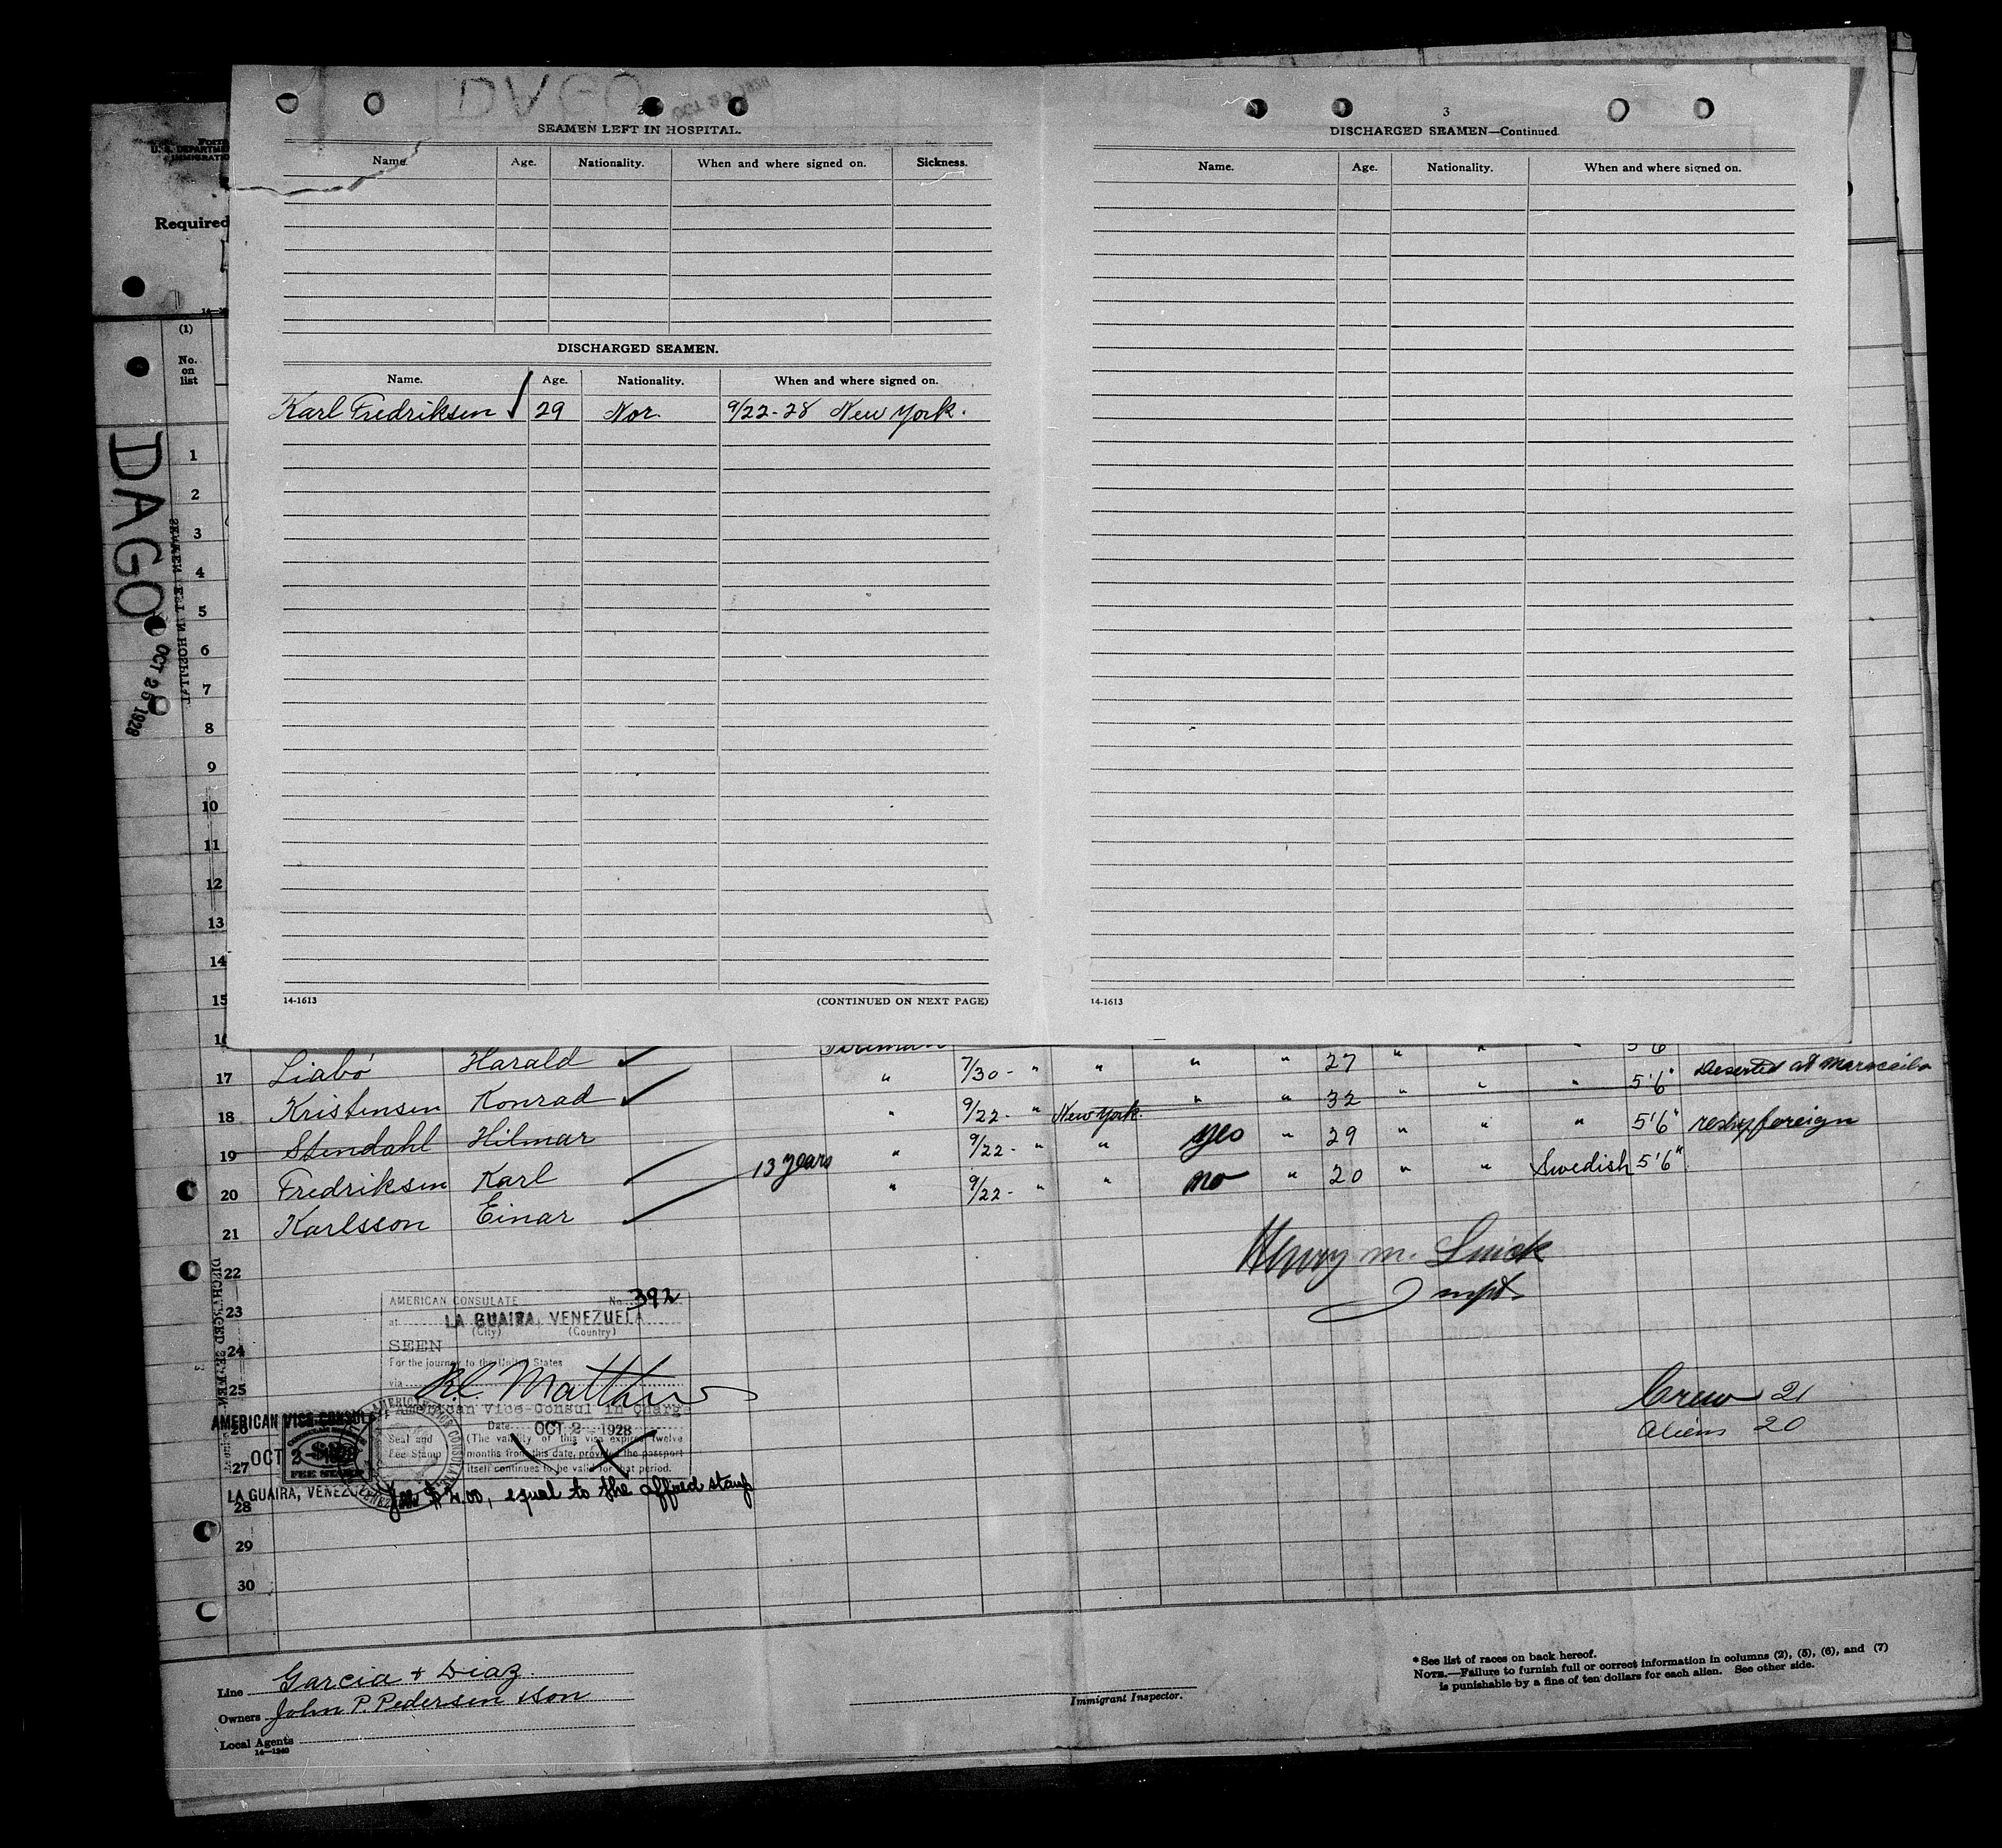 2
SEAMEN LEFT IN HOSPITAL.
Name. Age. Nationality. When and where signed on. Sickness.
DISCHARGED SEAMEN.
Name. Age. Nationality. When and where signed on.
Karl Fredriksen 29 Nor. 9/22-28 New York.
14-1613 (CONTINUED ON NEXT PAGE)
3
DISCHARGED SEAMEN—Continued
Name. Age. Nationality. When and where signed on.
14-1613
Required
(1)
No.
on
list
DAGO
OCT 26 1928
1
2
3
4
5
6
7
8
9
10
11
12
13
14
15
17 Liabó Harald 7/30- " " " " 27 " " " 5'6" Deserted at Maracaibo
18 Kristensen Konrad " 9/22- " New York. " " 32 " " " 5'6"
19 Stendahl Hilmar " 9/22- " " yes " 29 " " " 5'6" reshp foreign
20 Fredriksen Karl 13 years " 9/22- " " no " 20 " " Swedish 5'6"
21 Karlsson Einar
22
23
24
25
26
27
28
29
30
Henry M.
Inspt.
AMERICAN CONSULATE No. 392
at LA GUAIRA, VENEZUELA
(City) (Country)
SEEN
For the journey to the United States
via
American Vice-Consul in Charge
Date OCT 2 - 1928
Seal and (The validity of this visa expires twelve
Fee Stamp months from this date, provided the passport
itself continues to be valid for that period.
AMERICAN VICE CONSUL
OCT 2 - 1928
FEE STAMP
LA GUAIRA, VENEZU
equal to the affixed stamp
Crew 21
Aliens 20
Line Garcia & Diaz
Owners John P. Pedersen & Son
Local Agents
14—1240
Immigrant Inspector.
*See list of races on back hereof.
NOTE.—Failure to furnish full or correct information in columns (2), (5), (6), and (7)
is punishable by a fine of ten dollars for each alien. See other side.